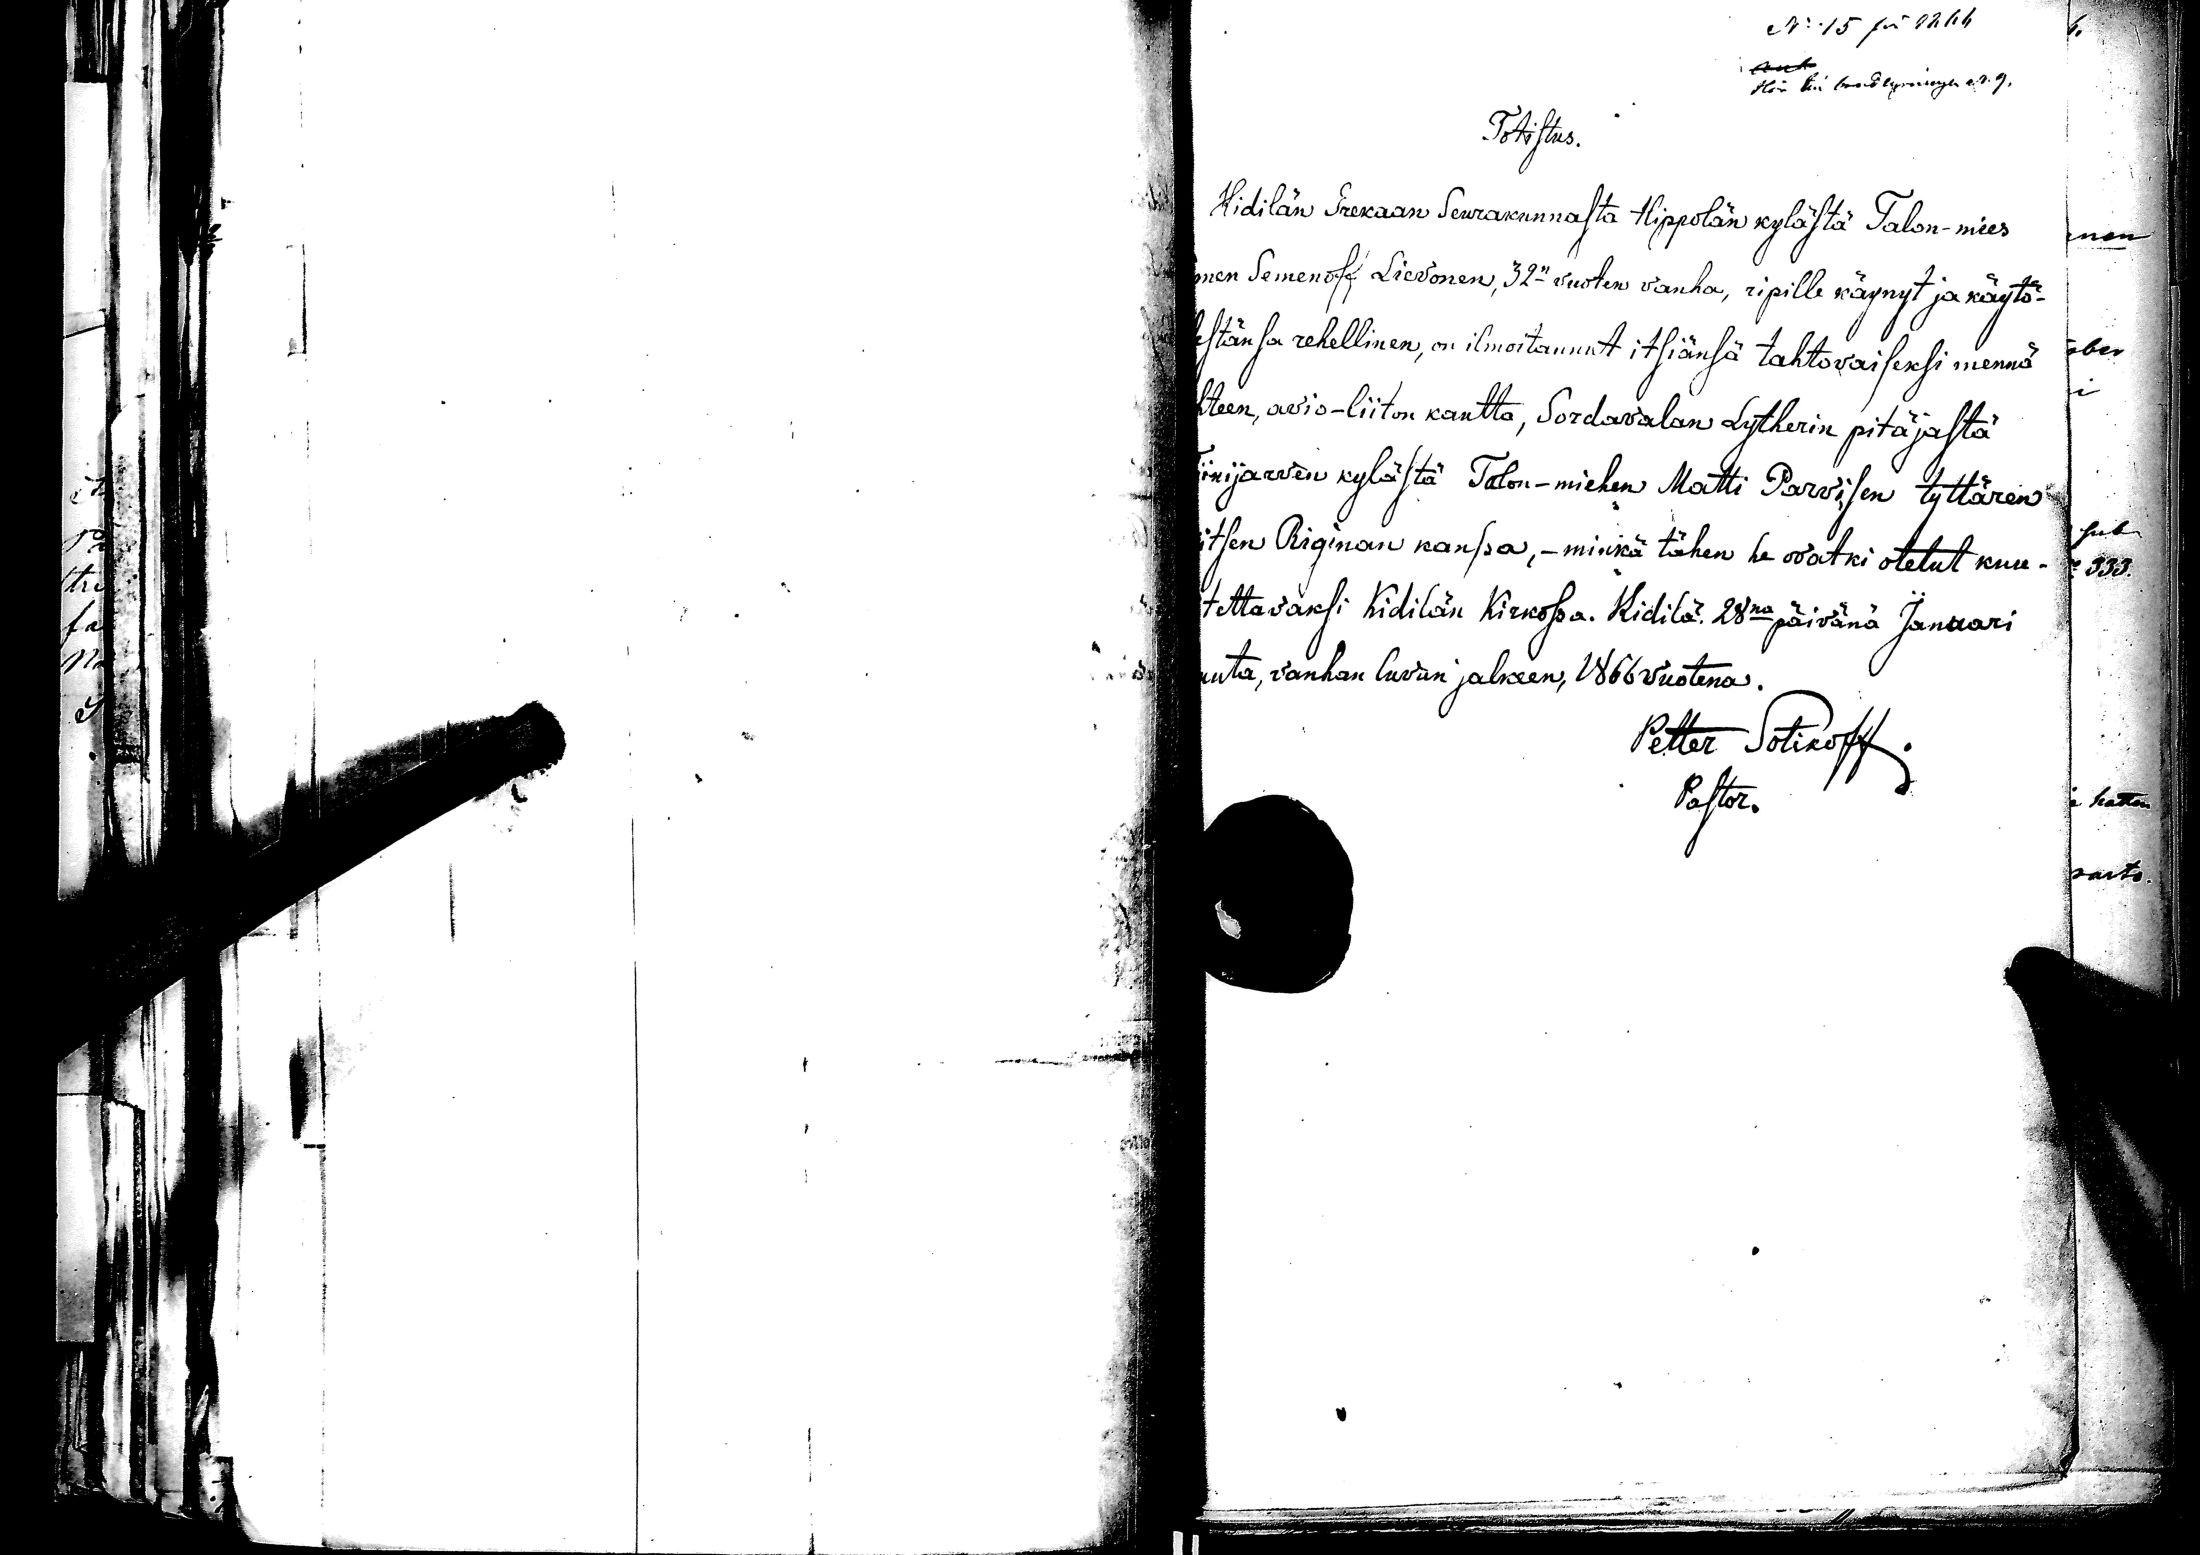 No 15 för 1866
Hör till
Totistus.
Kidilän Grekaan Seurakunnasta Hippolän kylästä Talon-mies
men Semenoff Lievonen, 32n vuoten vanha, ripille käynyt ja käytö-
estänsa rehellinen, on ilmoitannut itsiänsä tahtovaiseksi mennä
hteen, avio-liiton kautta, Sordavalan Lytherin pitäjastä
inijarven kylästä Talon-miehen Matti Parvisen tyttären
itsen Riginan kanssa, - minkä tähen he ovatki otetut kuu-
tettavaksi Kidilän Kirkossa. Kidilä. 28na päivänä Januari
uuta, vanhan luvun jalkeen, 1866 vuotena.
Petter Sotikoff.
Pastor.
nen
ber
i
sub
333.
hatten